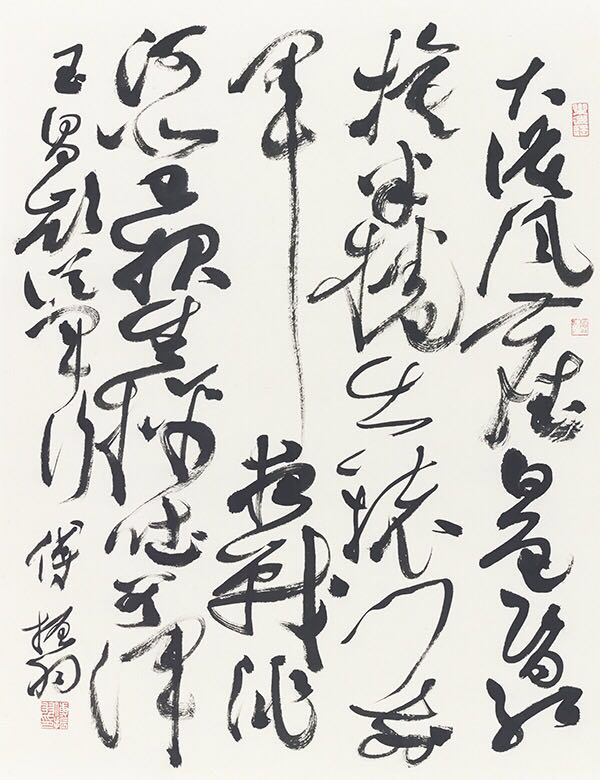 大漠风尘日色昏红
旗半捲出辕门前
军夜战洮
河北已报生擒吐谷浑
王昌龄从军行 傅振羽